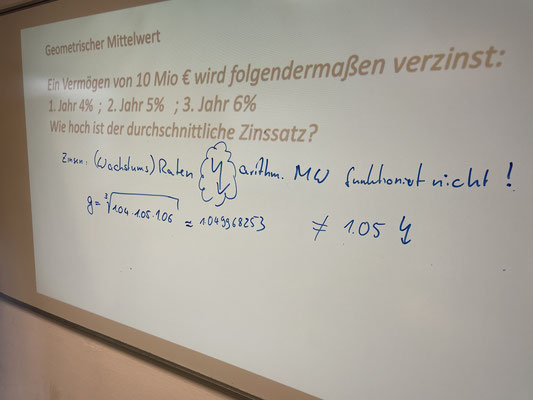 Geometrischer Mittelwert
Ein Vermögen von 10 Mio € wird folgendermaßen verzinst:
1. Jahr 4% ; 2. Jahr 5% ; 3. Jahr 6%
Wie hoch ist der durchschnittliche Zinssatz?
Zinsen: (Wachstums) Raten arithm. MW funktioniert nicht!
g = ³√1.04·1.05·1.06 ≈ 1.049968253 ≠ 1.05